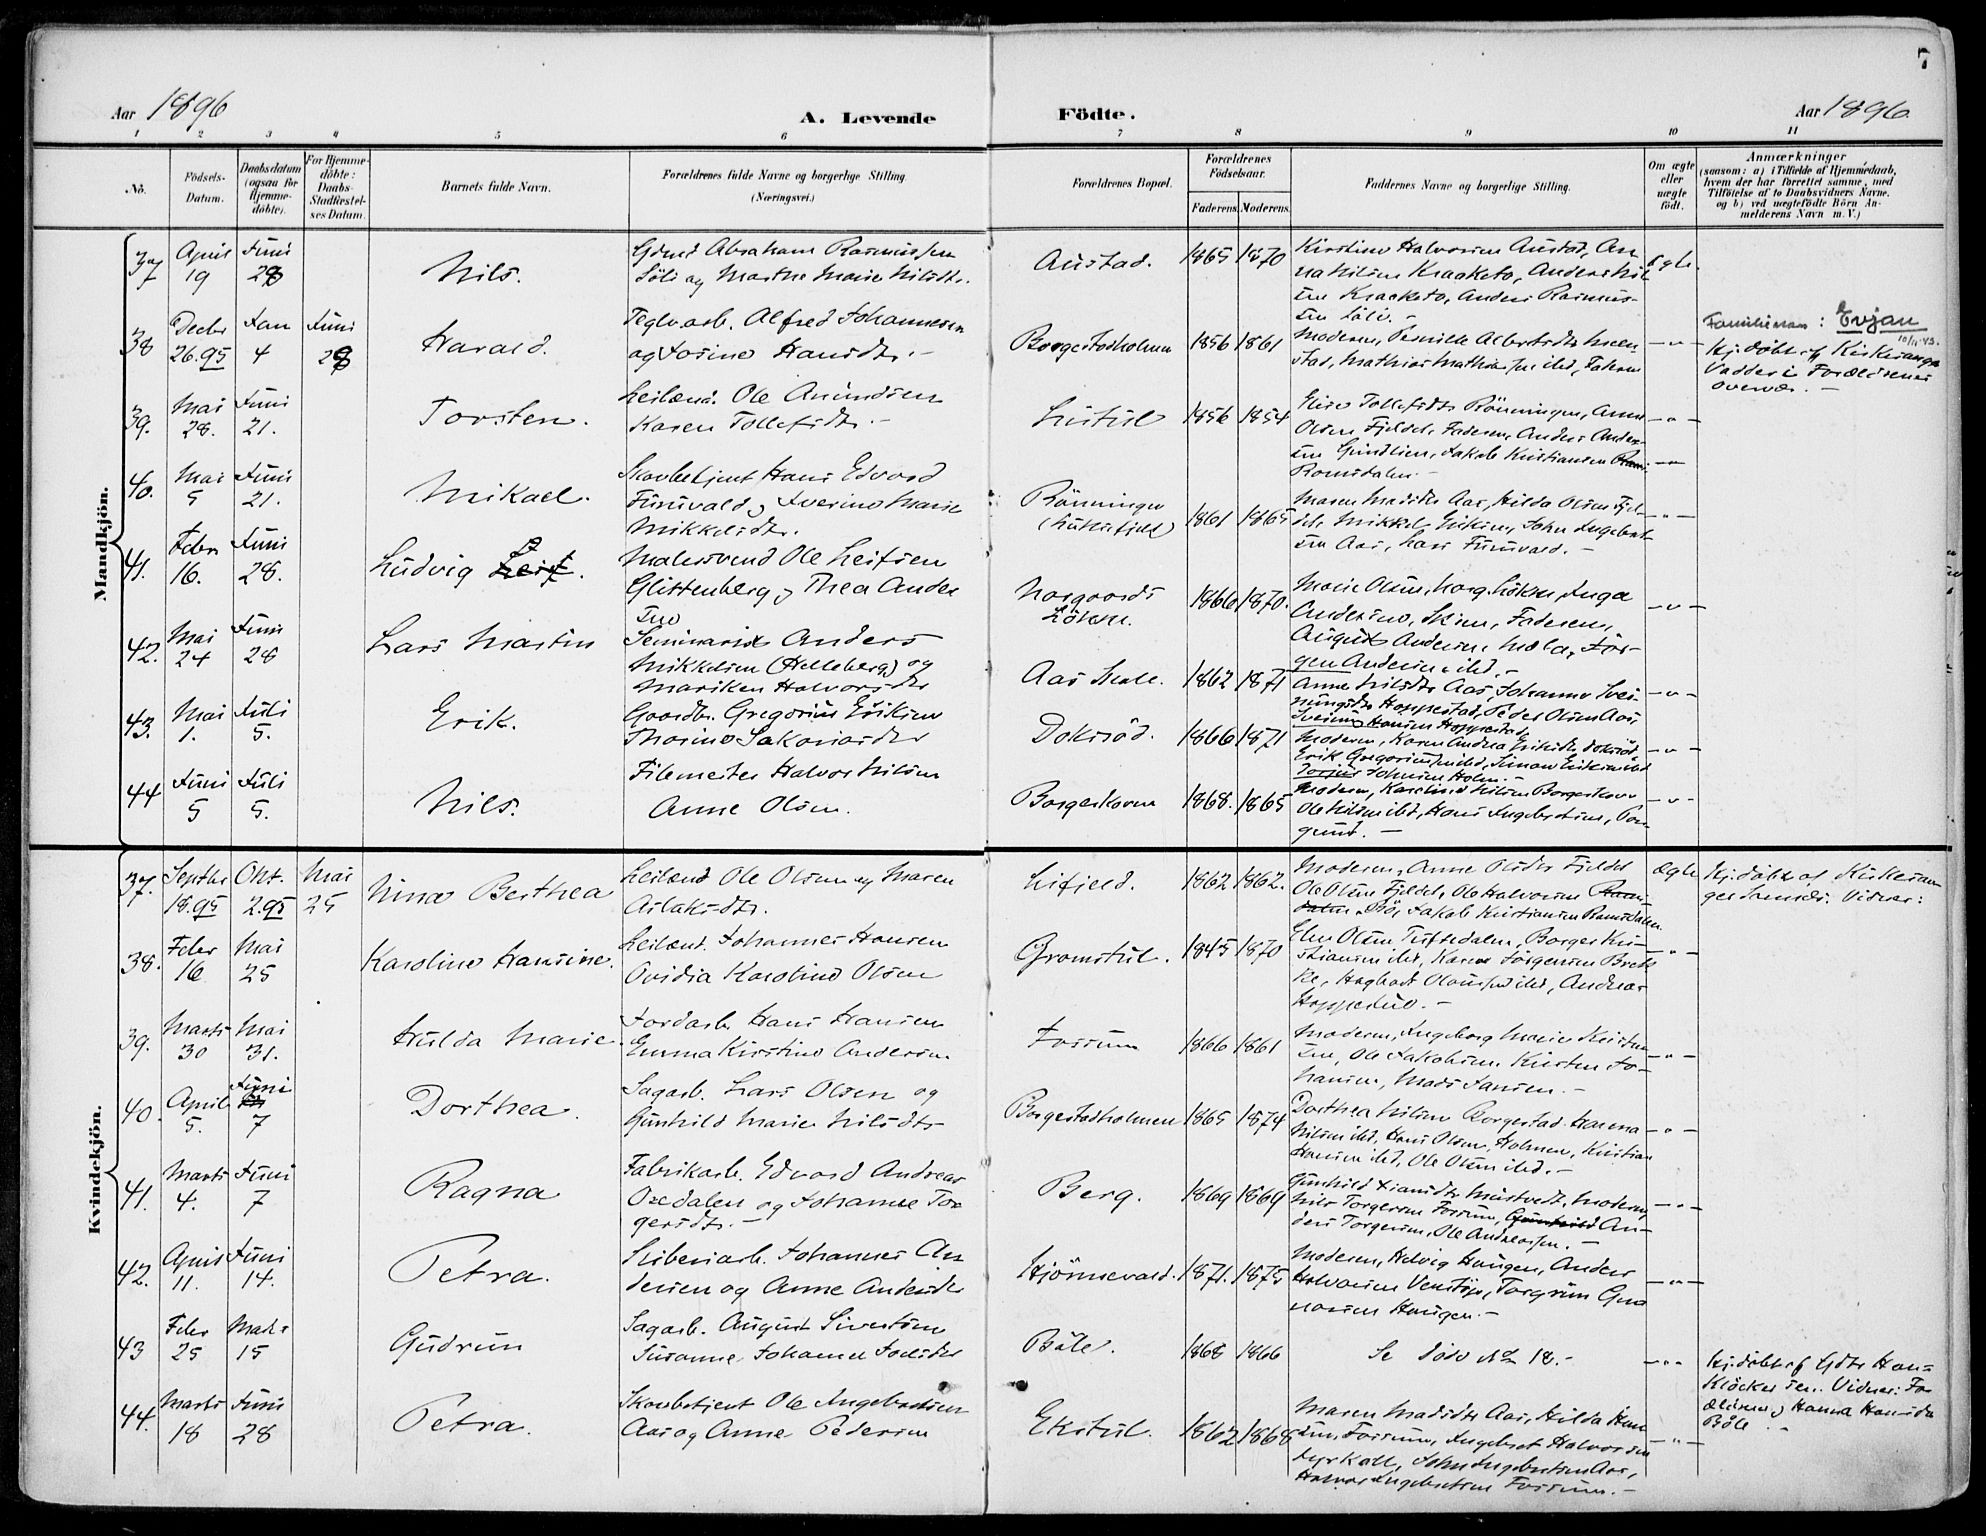 7
Aar 1896
A. Levende Födte.
Aar 1896
1 2 3 4 5 6 7 8 9 10 11
No.
Födsels-
Datum.
Daabsdatum
(ogsaa for
Hjemme-
döbte).
For Hjemme-
döbte:
Daabs-
Stadfæstel-
ses Datum.
Barnets fulde Navn.
Forældrenes fulde Navne og borgerlige Stilling.
(Næringsvei.)
Forældrenes Bopæl.
Forældrenes
Födselsaar.
Faderens. Moderens.
Faddernes Navne og borgerlige Stilling.
Om ægte
eller
uægte
födt.
Anmærkninger
(saasom: a) i Tilfælde af Hjemmedaab,
hvem der har forrettet samme, med
Tilföielse af to Daabsvidners Navne.
og b) ved uægtefödte Börn An-
melderens Navn m. V.)
Mandkjön.
37 April 19 Juni 28 Nils.
Gdmd Abraham Rasmussen
Löli og Marthe Marie Nilsdtr.
Austad. 1865 1870
Kirstine Halvorsen Austad, An-
na Nilsen Kraaketo, Anders Nil-
sen Kraaketo, Anders Rasmus-
sen Löli. -
ægte.
38 Decbr 26.95 Jan 4 Juni 28 Harald.
Teglv.arb. Alfred Johannesen
og Josine Hansdtr. -
Borgestadholmen 1856 1861
Moderen, Pernille Albertsdtr Men-
stad, Mathias Mathisen ibd, Johan
- " -
Familienavn: Evjan
10/11 43.
Hj.döbt af Kirkesanger
Vadder i Forældrenes
overvær. -
39. Mai 28. Juni 21. Torsten.
Leilænd. Ole Amundsen
Karen Tollefsdtr. -
Lutul 1856 1854
Elise Tollefsdtr Rönningen, Anne
Olsen Fjeldet, Faderen, Anders Ander-
sen Grindlien, Jakob Kristiansen
Romsdalen. -
- " -
40. Mai 5 Juni 21. Mikael.
Skovbetjent Hans Edvard
Furuvald og Iverine Marie
Mikkelsdtr.
Rönningen
1861 1865
Maren Madsdtr Aas, Hilda Olsen Fjel-
det, Mikkel Eriksen, John Ingebret-
sen Aas, Lars Furuvald. -
- " -
41. Febr 16. Juni 28. Ludvig Leif.
Malersvend Ole Leifsen
Glittenberg og Thea Ander
sen
Norgaards
Löken. 1866 1870.
Marie Olsen, Norg. Löken, Inga
Andersen, Skien, Faderen,
August Andersen, Mæla, Jör-
gen Andersen ibd. -
- " -
42. Mai 24 Juni 28 Lars Martin
Seminarist Anders
Mikkelsen (Helleberg) og
Mariken Halvorsdtr
Aas Skole. 1862 1871
Anne Nilsdtr Aas, Johanne Svei-
nungsdtr Hoppestad, Peder Olsen Aas,
Sveinung Hansen Hoppestad
- " -
43. Mai 1. Juli 5. Erik.
Gaardbr. Gregorius Eriksen
Thorine Sakariasdtr
Doksröd. 1866 1871
Moderen, Karen Andrea Eriksdtr Doksröd
Erik Gregoriussen ibd, Simon Eriksen ibd
Johnsen Holm. -
- " -
44 Juni 5 Juli 5. Nils.
Filemester Halvor Nilsen
Anne Olsen.
Borgeskoven 1868. 1865
Moderen, Karoline Nilsen Borgeskov
Ole Nilsen ibd, Hans Ingebretsen, Pors-
grund. -
- " -
Kvindekjön.
37. Septbr 18.95 Okt. 2.95 Mai 25 Nina Berthea
Leilænd Ole Olsen og Maren
Aslaksdtr.
Lifjeld. 1862 1862.
Moderen, Anne Olsdtr Fjeldet
Ole Olsen Fjeldet, Ole Halvorsen
Bö, Jakob Kristiansen Romsdalen.
ægte
Hj.döbt af Kirkesan-
ger Vidner:
38. Febr 16 Mai 25 Karoline Hansine.
Leilænd. Johannes Hansen
Ovidia Karoline Olsen
Gromstul. 1845 1870
Elen Olsen Tuftedalen, Borger Kri-
stiansen ibd, Karen Jörgensen Brek-
ke, Hagbart Olausen ibd, Andreas
Hoppestul. -
- " -
39. Marts 30 Mai 31. Hulda Marie.
Jordarb. Hans Hansen
Emma Kirstine Andersen
Fossum 1866 1861
Moderen, Ingeborg Marie Kristen-
sen, Ole Jakobsen, Kristen Jo-
hansen, Mads Jansen. -
- " -
40. April 5. Juni 7 Dorthea.
Sagarb. Lars Olsen og
Gunhild Marie Nilsdtr
Borgestadholmen 1865 1874
Dorthea Nilsen Borgestad, Hanna
Nilsen ibd, Hans Olsen, Holmen, Kristian
Hansen ibd, Ole Olsen ibd. -
- " -
41. Marts 4. Juni 7 Ragna
Fabrikarb. Edvard Andreas
Oxedalen og Johanne Tor-
gersdtr. -
Berg. 1869 1869
Gunhild Hansdtr Mustvedt, Moderen,
Nils Torgersen Fossum, Gunhild An-
ders Torgersen, Ole Andreassen. -
- " -
42. April 11. Juni 14. Petra.
Sliberiarb. Johannes An-
dersen og Anne Andersdtr
Hjörnevald. 1871. 1875
Moderen, Helvig Haugen, Anders
Halvorsen Venstöp, Torgrim Gun-
narsen Haugen. -
- " -
43 Febr 25 Marts 15 Gudrun
Sagarb. August Sivertsen
Susanne Johanne Joelsdtr
Böle. 1868 1866
Se döde No 18. -
- " -
Hj.döbt af Han-
Klöcker sen. Vidner: For-
ældrene og Hanna Hansdtr
Böle. -
44. Marts 18 Juni 28 Petra.
Skovbetjent Ole Ingebretsen
Aas og Anne Pedersen
Ekstul. 1862 1868
Maren Madsdtr Aas, Hilda Han-
sen, Fossum, Ingebret Halvorsen
John Ingebretsen Aas,
Halvor Ingebretsen Fossum. -
- " -